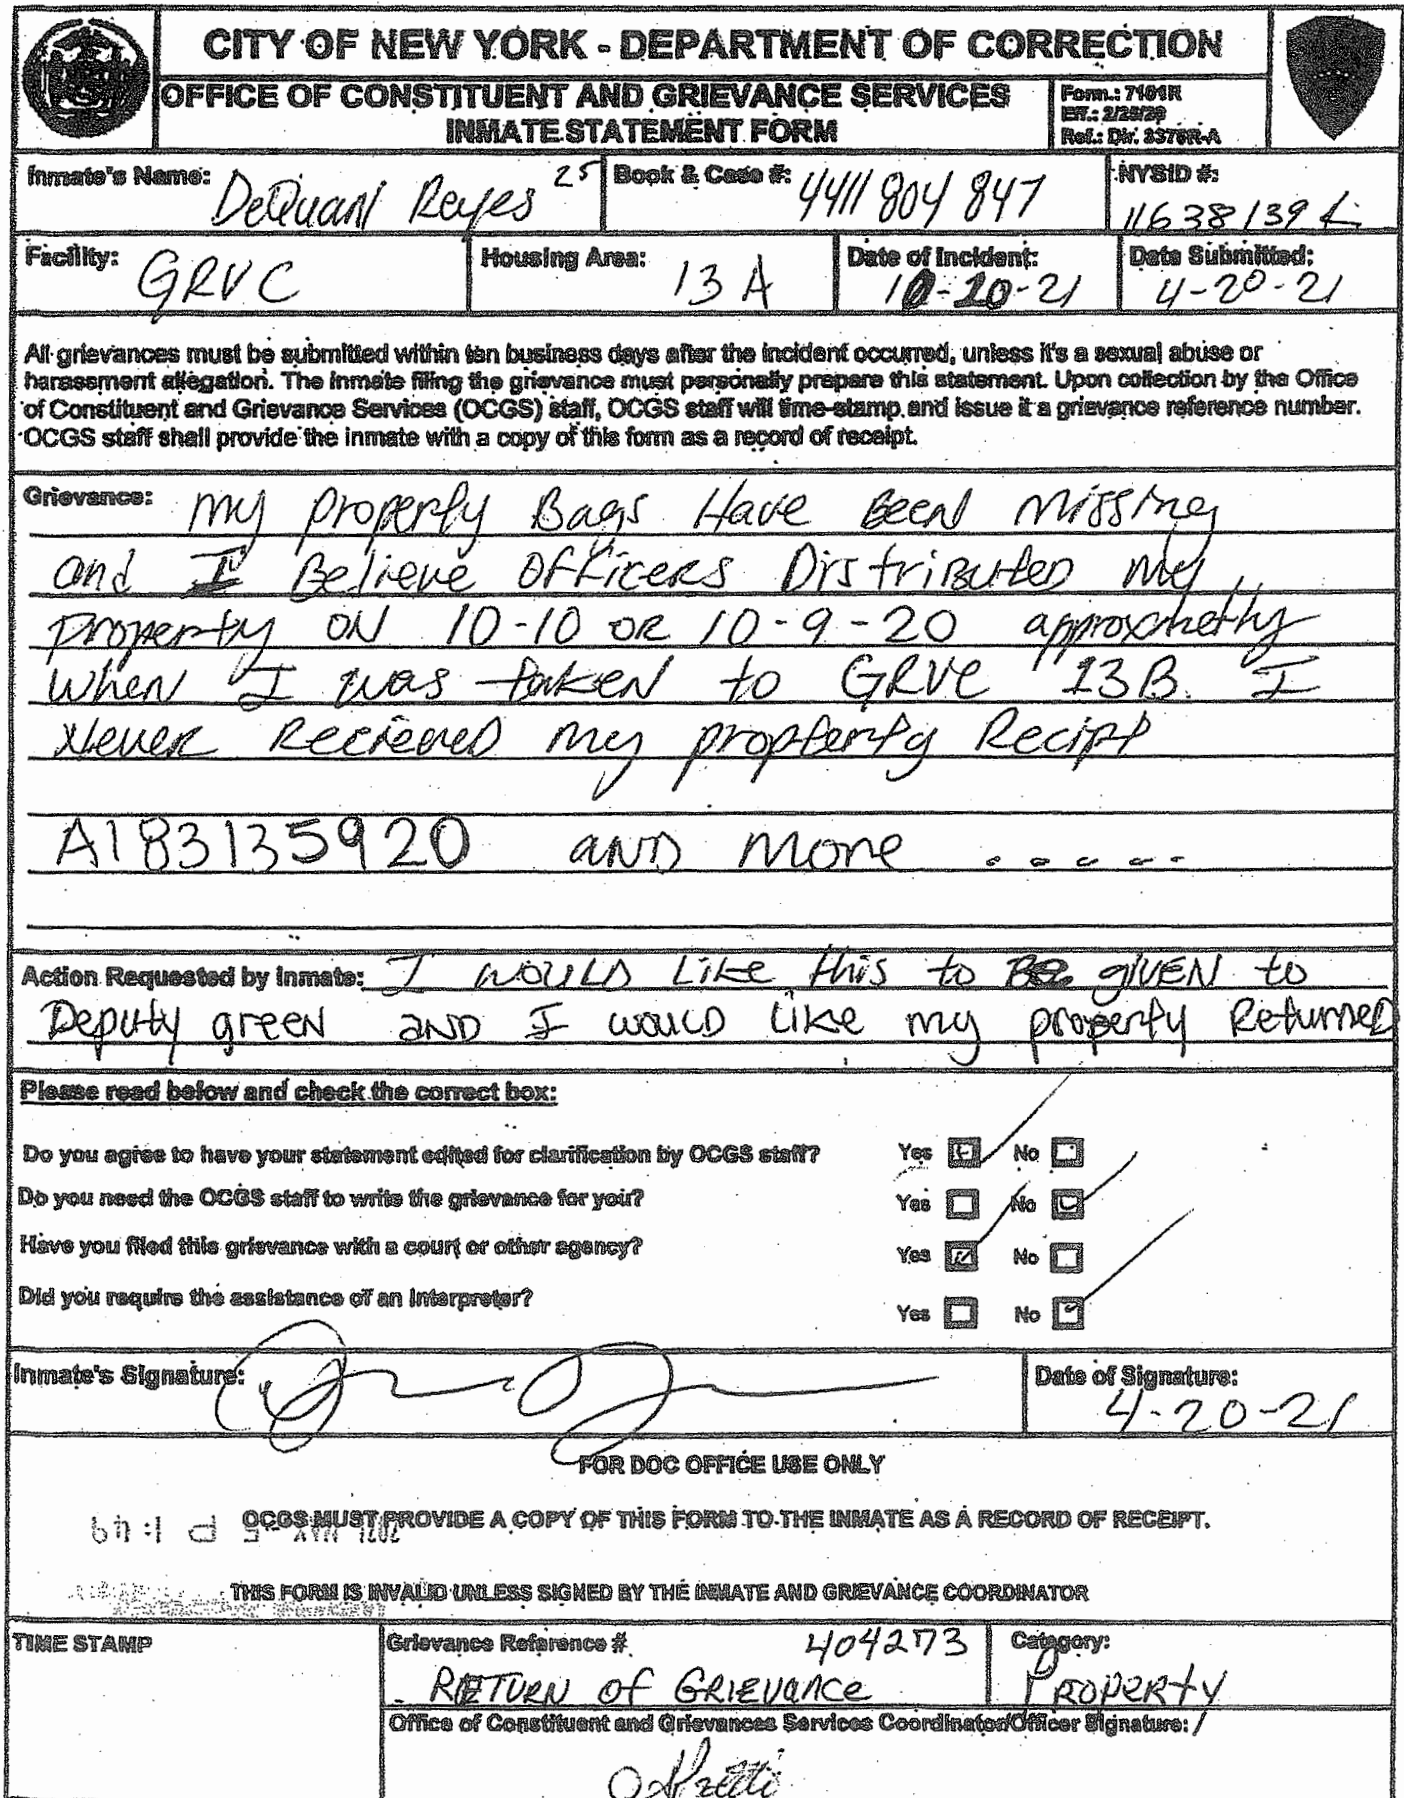 CITY OF NEW YORK - DEPARTMENT OF CORRECTION
OFFICE OF CONSTITUENT AND GRIEVANCE SERVICES
INMATE STATEMENT FORM
Form.: 7101R
Eff.: 2/28/20
Ref.: Dir. 3376R-A
Inmate's Name: DeQuan Reyes 25
Book & Case #: 4411804847
NYSID #: 11638139L
Facility: GRVC
Housing Area: 13A
Date of Incident: 10-10-21
Date Submitted: 4-20-21
All grievances must be submitted within ten business days after the incident occurred, unless it's a sexual abuse or
harassment allegation. The inmate filing the grievance must personally prepare this statement. Upon collection by the Office
of Constituent and Grievance Services (OCGS) staff, OCGS staff will time-stamp and issue it a grievance reference number.
OCGS staff shall provide the inmate with a copy of this form as a record of receipt.
Grievance: my property Bags Have Been missing
and I Believe Officers Distributed my
property ON 10-10 OR 10-9-20 approxmetly
when I was taken to GRVC 13B. I
Never Recieved my propterty Recipt
A183135920 AND More .....
Action Requested by Inmate: I WOULD Like this to Be giVEN to
Deputy green AND I would like my property Returned
Please read below and check the correct box:
Do you agree to have your statement edited for clarification by OCGS staff? Yes No
Do you need the OCGS staff to write the grievance for you? Yes No
Have you filed this grievance with a court or other agency? Yes No
Did you require the assistance of an interpreter? Yes No
Inmate's Signature:
Date of Signature: 4-20-21
FOR DOC OFFICE USE ONLY
OCGS MUST PROVIDE A COPY OF THIS FORM TO THE INMATE AS A RECORD OF RECEIPT.
2021 MAY -5 P 1:49
THIS FORM IS INVALID UNLESS SIGNED BY THE INMATE AND GRIEVANCE COORDINATOR
TIME STAMP
Grievance Reference #. 404273
RETURN of GRIEVANCE
Category:
PROPERTY
Office of Constituent and Grievances Services Coordinator/Officer Signature: